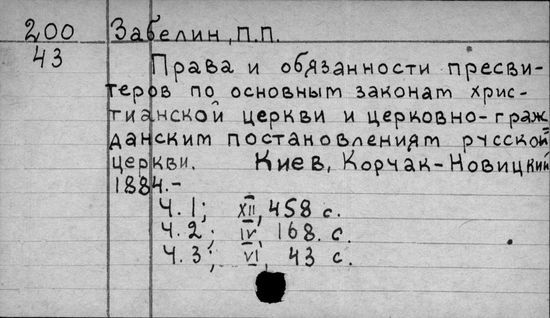 200 Забелин, П.П.
43
Права и обязанности пресви-
теров по основным законам хрис-
тианской церкви и церковно-граж
данским постановлениям русской
церкви. Киев, Корчак-Новицкий
1884.-
Ч. 1; XII, 458 с.
Ч. 2; IV, 168. с.
Ч. 3; VI, 43 с.